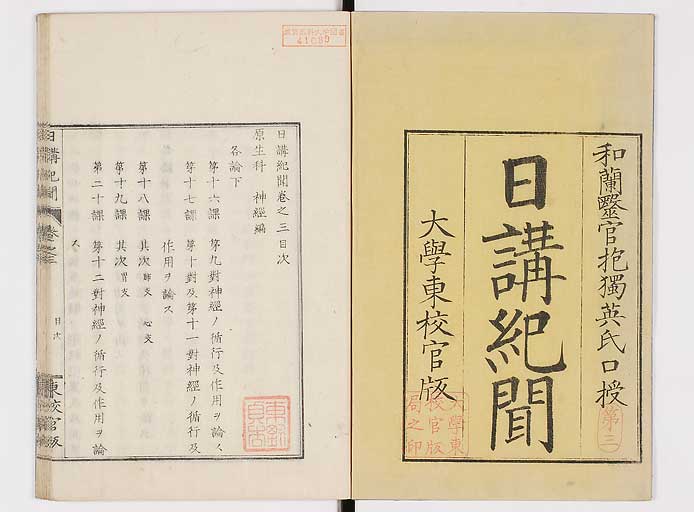 和蘭醫官抱獨英氏口授
第三
日講紀聞
大學東校官版
大學東
校官版
局之印
41089
日講紀聞卷之三目次
原生科　神經編
各論下
第十六課　第九對神經ノ循行及作用ヲ論ス
第十七課　第十對及第十一對神經ノ循行及
作用ヲ論ス
第十八課　其次 肺支　心支
第十九課　其次 胃支
第二十課　第十二對神經ノ循行及作用ヲ論
ス
日講紀聞
卷之三
目次
東校官版